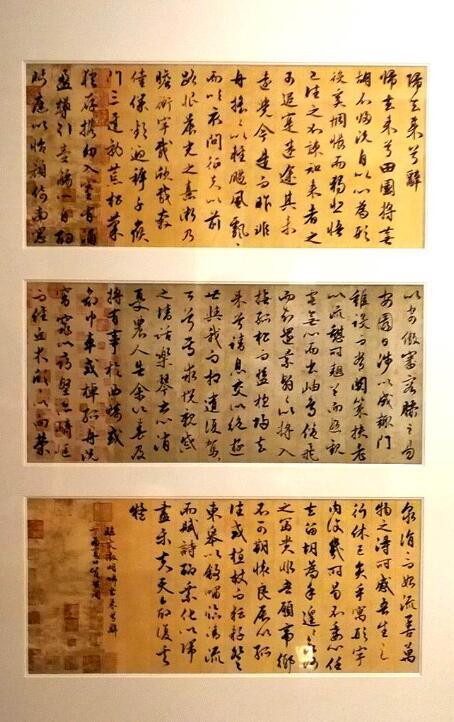 歸去來兮辭
歸去來兮田園將蕪
胡不歸既自以心為形
役奚惆悵而獨悲悟
已往之不諫知來者之
可追寔迷途其未
遠覺今是而昨非
舟搖搖以輕颺風飄飄
而以吹衣問征夫以前
路恨晨光之熹微乃
瞻衡宇載欣載奔
僮僕歡迎稚子候
門三逕就荒松菊
猶存攜幼入室有酒
盈樽引壺觴以自酌
眄庭柯以怡顏倚南窗
以寄傲審容膝之易
安園日涉以成趣門
雖設而常關策扶老
以流憩時矯首而遐觀
雲無心以出岫鳥倦飛
而知還景翳翳以將入
撫孤松而盤桓歸去
來兮請息交以絕遊
世與我而相遺復駕
言兮焉求悅親戚
之情話樂琴書以消
憂農人告余以春及
將有事於西疇或
命巾車或棹孤舟既
窈窕以尋壑亦崎嶇
而經丘木欣欣以向榮
泉涓涓而始流善萬
物之得時感吾生之
行休已矣乎寓形宇
內復幾時曷不委心任
去留胡為乎遑遑欲何
之富貴非吾願帝鄉
不可期懷良辰以孤
往或植杖而耘耔登
東皋以舒嘯臨清流
而賦詩聊乘化以歸
盡樂夫天命復奚
疑
臨文徵明歸去來兮辭